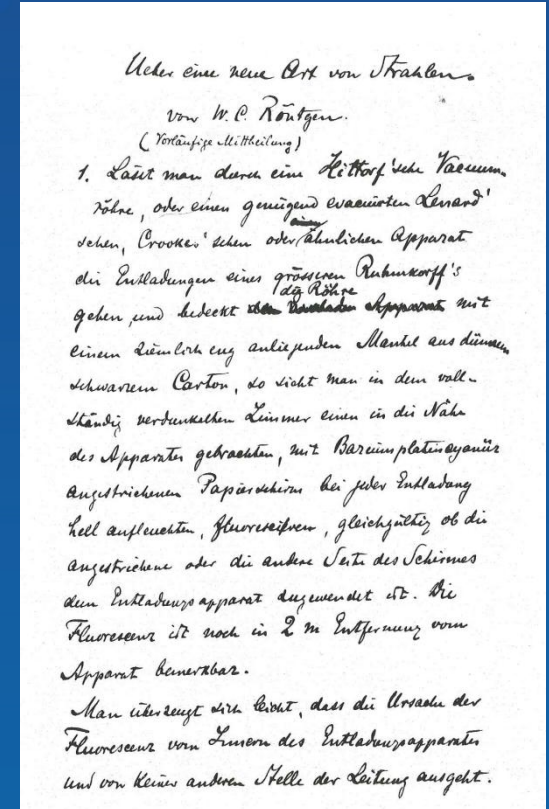 Ueber eine neue Art von Strahlen.
von W. C. Röntgen.
(Vorläufige Mittheilung)
1. Lässt man durch eine Hittorf'sche Vacuum-
röhre, oder einen genügend evacuirten Lenard'
einen
schen, Crookes'schen oder ähnlichen Apparat
die Entladungen eines grösseren Ruhmkorff's
die Röhre
gehen, und bedeckt Apparat mit
einem ziemlich eng anliegenden Mantel aus dünnem
schwarzem Carton, so sieht man in dem voll-
ständig verdunkelten Zimmer einen in die Nähe
des Apparates gebrachten, mit Bariumplatincyanür
angestrichenen Papierschirm bei jeder Entladung
hell aufleuchten, fluoresciren, gleichgültig ob die
angestrichene oder die andere Seite des Schirmes
dem Entladungsapparat zugewendet ist. Die
Fluorescenz ist noch in 2 m Entfernung vom
Apparat bemerkbar.
Man überzeugt sich leicht, dass die Ursache der
Fluorescenz vom Innern des Entladungsapparates
und von keiner anderen Stelle der Leitung ausgeht.